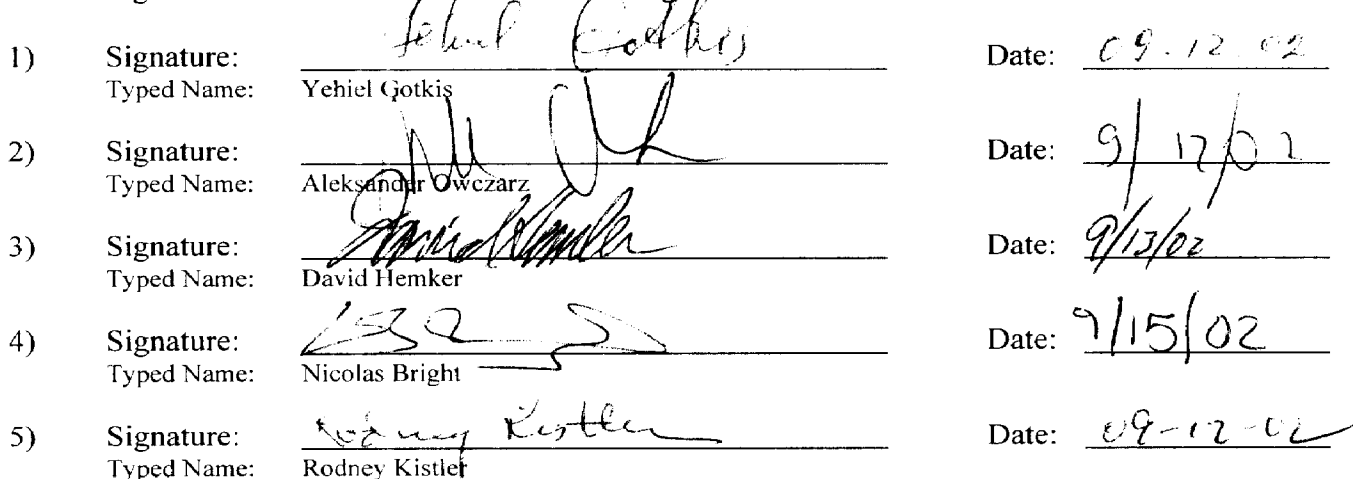 1) Signature: Yehiel Gotkis Date: 09.12.02
Typed Name: Yehiel Gotkis
2) Signature: Date: 9/17/02
Typed Name: Aleksander Owczarz
3) Signature: David Hemker Date: 9/13/02
Typed Name: David Hemker
4) Signature: Date: 9/15/02
Typed Name: Nicolas Bright
5) Signature: Rodney Kistler Date: 09-12-02
Typed Name: Rodney Kistler